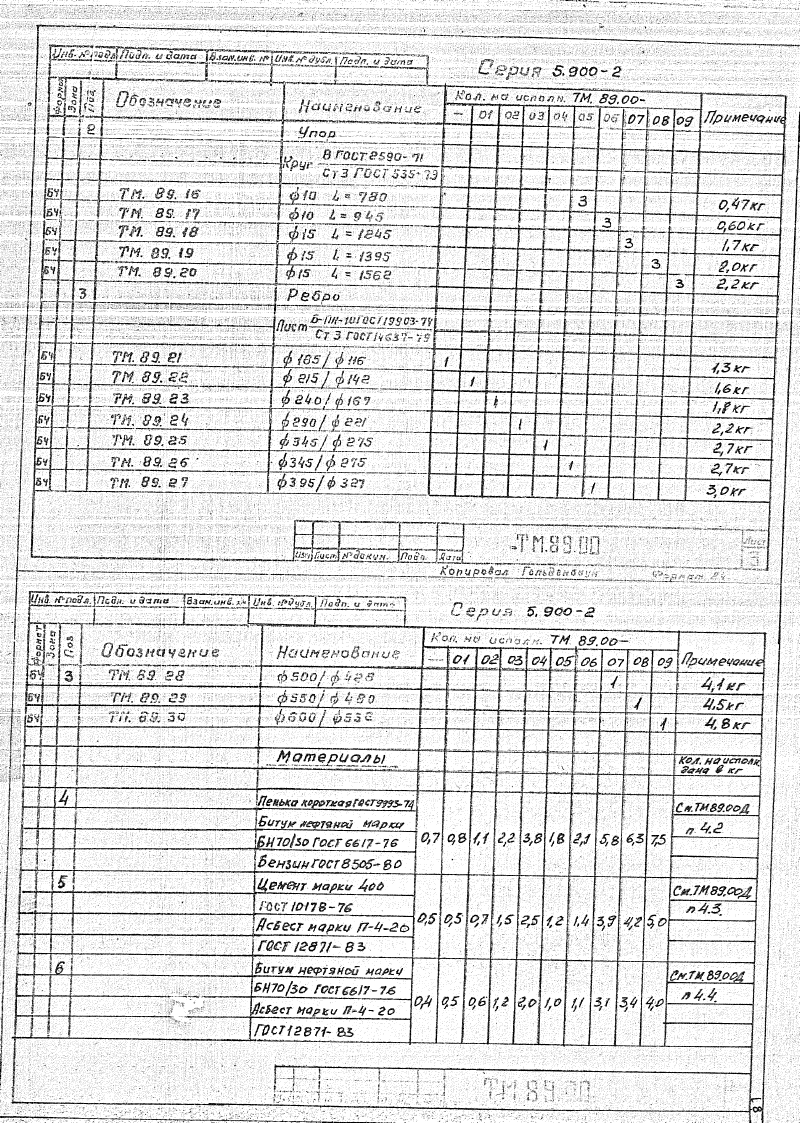 Инв. № подл. Подп. и дата Взам. инв. № Инв. № дубл. Подп. и дата
Серия 5.900-2
Формат Зона Поз. Обозначение Наименование Кол. на исполн. ТМ. 89.00- Примечание
— 01 02 03 04 05 06 07 08 09
2 Упор
Круг В ГОСТ 2590-71
Ст 3 ГОСТ 535-79
БЧ ТМ. 89.16 ϕ10 L = 780 3 0,47кг
БЧ ТМ. 89.17 ϕ10 L = 945 3 0,60кг
БЧ ТМ. 89.18 ϕ15 L = 1245 3 1,7кг
БЧ ТМ. 89.19 ϕ15 L = 1395 3 2,0кг
БЧ ТМ. 89.20 ϕ15 L = 1562 3 2,2кг
3 Ребро
Лист Б-ПН-10 ГОСТ 19903-74
Ст 3 ГОСТ 14637-79
БЧ ТМ. 89.21 ϕ185/ϕ116 1 1,3кг
БЧ ТМ. 89.22 ϕ215/ϕ142 1 1,6кг
БЧ ТМ. 89.23 ϕ240/ϕ167 1 1,8кг
БЧ ТМ. 89.24 ϕ290/ϕ221 1 2,2кг
БЧ ТМ. 89.25 ϕ345/ϕ275 1 2,7кг
БЧ ТМ. 89.26 ϕ345/ϕ275 1 2,7кг
БЧ ТМ. 89.27 ϕ395/ϕ327 1 3,0кг
ТМ.89.00 Лист
Изм Лист № докум. Подп. Дата 3
Копировал Гольденбаум Формат А4
Инв. № подл. Подп. и дата Взам. инв. № Инв. № дубл. Подп. и дата
Серия 5.900-2
Формат Зона Поз. Обозначение Наименование Кол. на исполн. ТМ 89.00- Примечание
— 01 02 03 04 05 06 07 08 09
БЧ 3 ТМ. 89.28 ϕ500/ϕ428 1 4,1кг
БЧ ТМ. 89.29 ϕ550/ϕ480 1 4,5кг
БЧ ТМ. 89.30 ϕ600/ϕ530 1 4,8кг
Материалы Кол. на исполн.
дана в кг
4 Пенька короткая ГОСТ 9993-74 См.ТМ89.00Д
Битум нефтяной марки п 4.2
БН70/30 ГОСТ 6617-76 0,7 0,8 1,1 2,2 3,8 1,8 2,1 5,8 6,3 7,5
Бензин ГОСТ 8505-80
5 Цемент марки 400 См.ТМ89.00Д
ГОСТ 10178-76 п 4.3.
Асбест марки П-4-20 0,5 0,5 0,7 1,5 2,5 1,2 1,4 3,9 4,2 5,0
ГОСТ 12871-83
6 Битум нефтяной марки См.ТМ.89.00Д
БН70/30 ГОСТ 6617-76 п 4.4.
Асбест марки П-4-20 0,4 0,5 0,6 1,2 2,0 1,0 1,1 3,1 3,4 4,0
ГОСТ 12871-83
ТМ 89.00
81